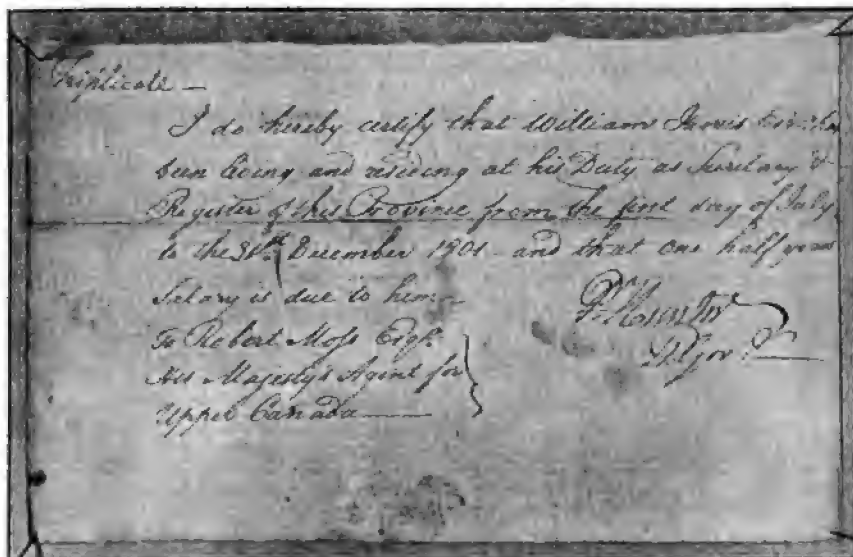 Triplicate —
I do hereby certify that William Jarvis Esqr has
been living and residing at his Duty as Secretary &
Register of this Province from the first day of July
to the 31st December 1801 - and that one half years
Salary is due to him
P. Hunter
Lt Govr
To Robert Moss Esqr
His Majesty's Agent for
Upper Canada —